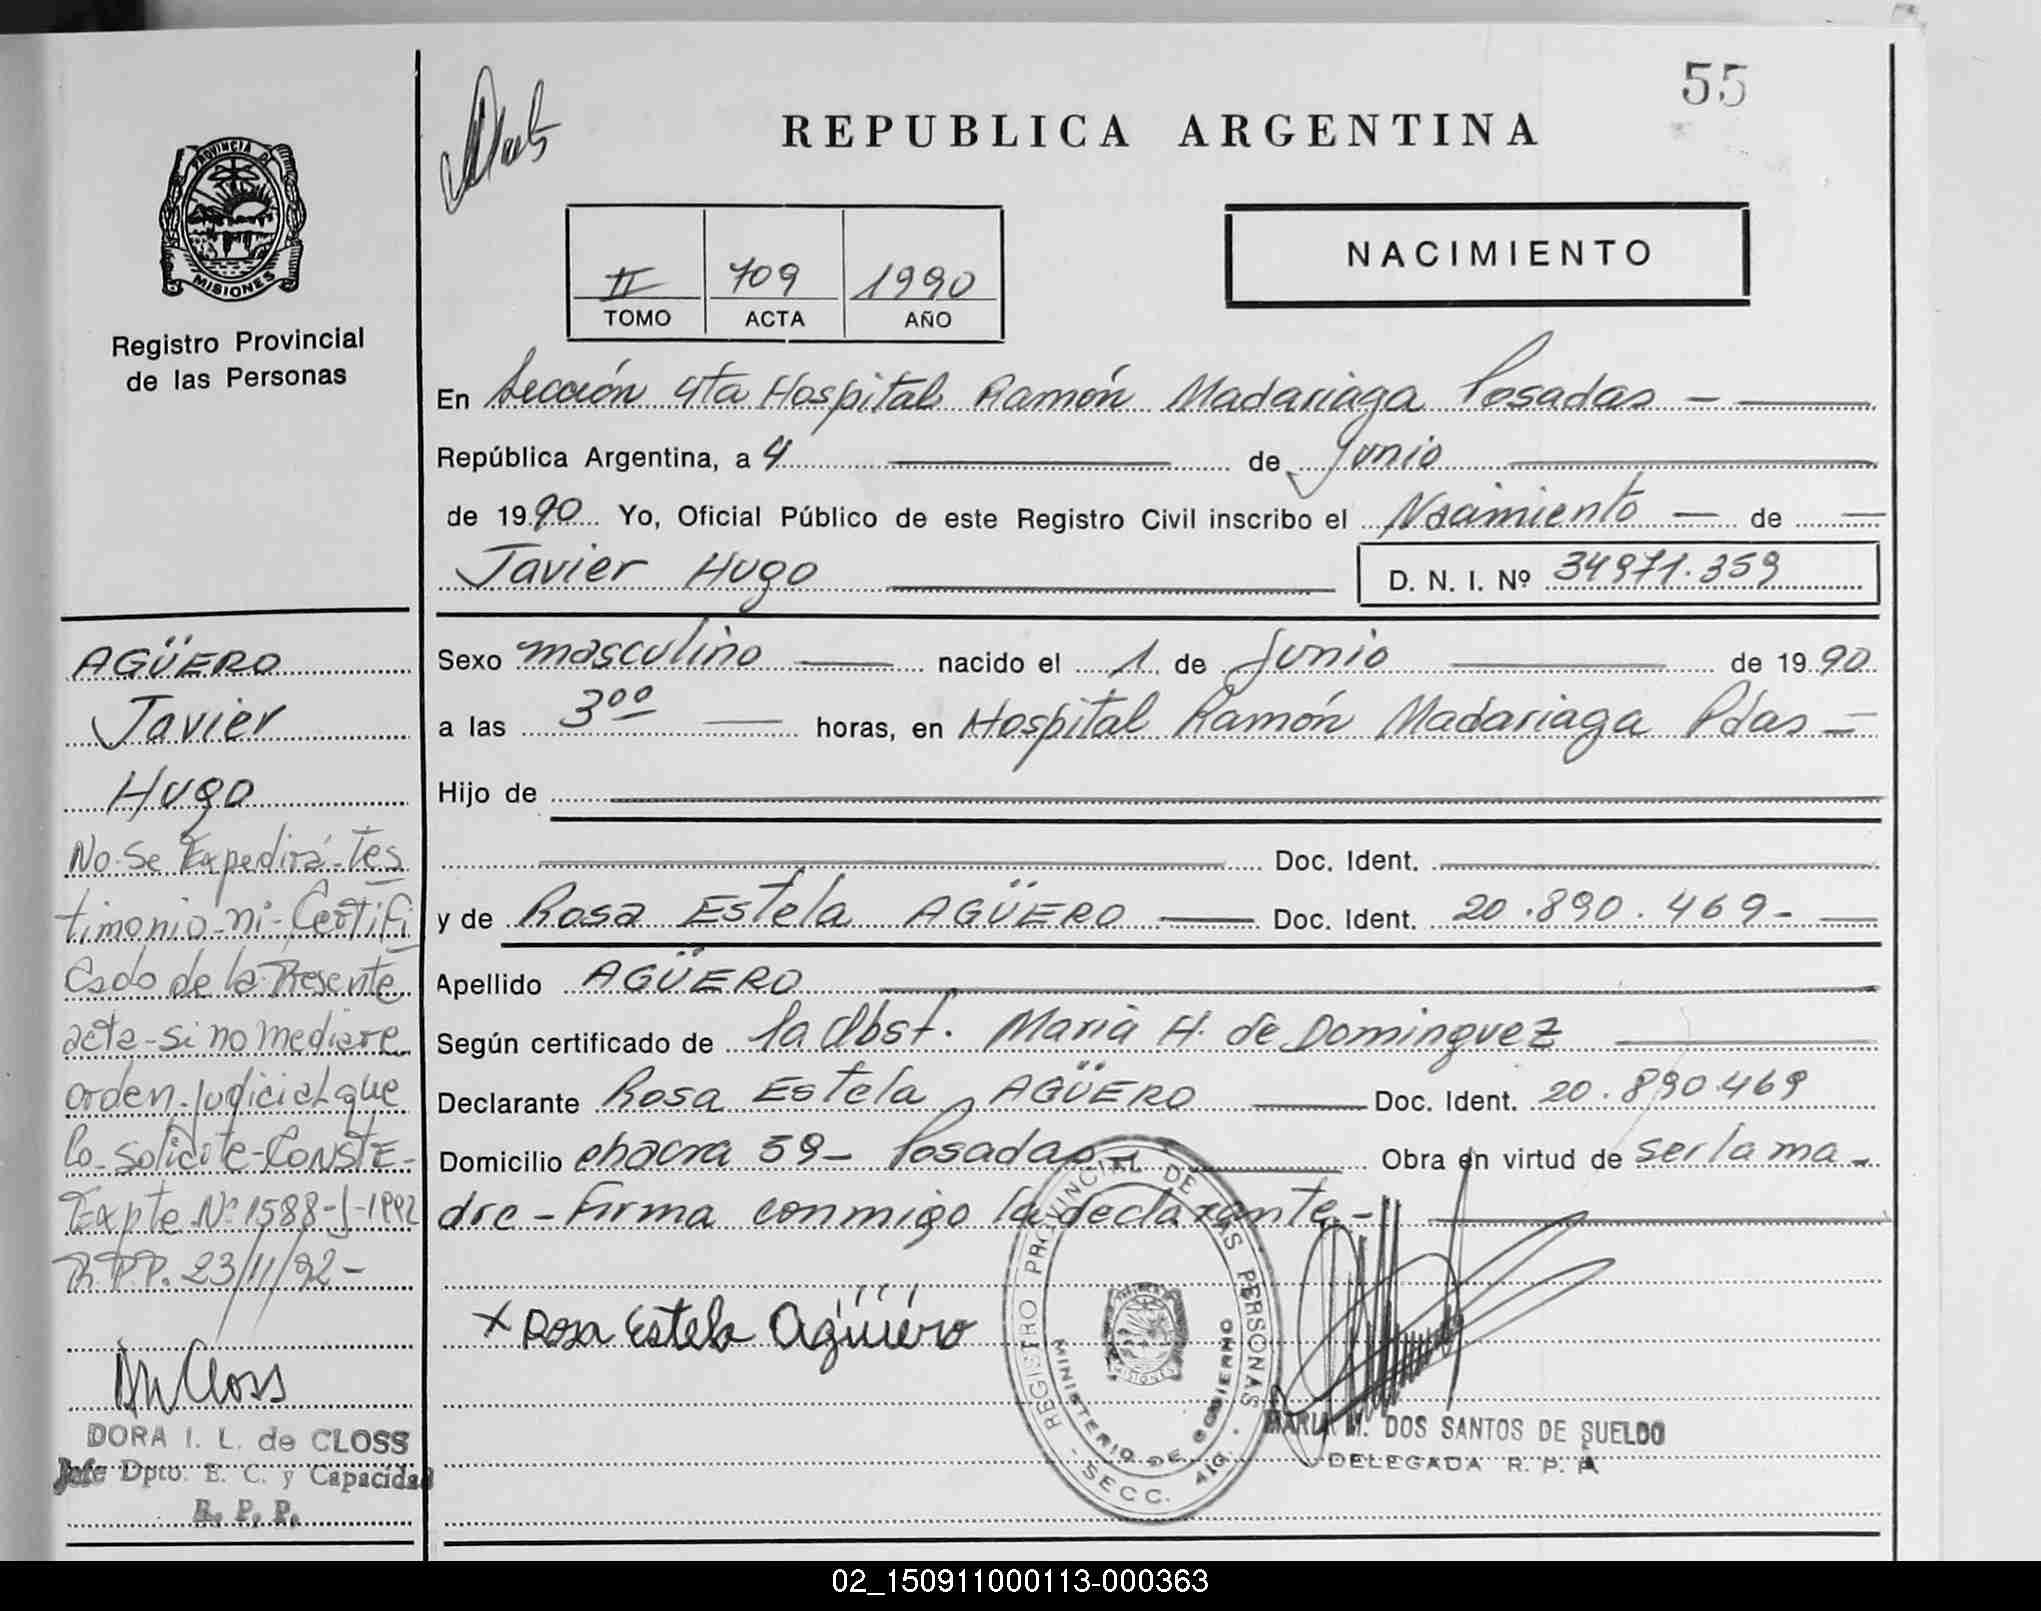 55
REPUBLICA ARGENTINA
PROVINCIA DE
MISIONES
Registro Provincial
de las Personas
II 709 1990
TOMO ACTA AÑO
NACIMIENTO
En Sección 4ta Hospital Ramón Madariaga Posadas -
República Argentina, a 4 de Junio
de 1990 Yo, Oficial Público de este Registro Civil inscribo el Nacimiento - de -
Javier Hugo
D. N. I. Nº 34971.359
Sexo masculino nacido el 1 de Junio de 1990
a las 3⁰⁰ horas, en Hospital Ramón Madariaga Pdas -
Hijo de
Doc. Ident.
y de Rosa Estela AGÜERO Doc. Ident. 20.890.469-
Apellido AGÜERO
Según certificado de la Obst. Maria H. de Dominguez
Declarante Rosa Estela AGÜERO Doc. Ident. 20.890.469
Domicilio chacra 59- Posadas- Obra en virtud de ser la ma-
dre - Firma conmigo la declarante.-
x Rosa Estela Agüero
REGISTRO PROVINCIAL DE LAS PERSONAS
MINISTERIO DE GOBIERNO
SECC. 4ta.
MARIA M. DOS SANTOS DE SUELDO
DELEGADA R. P. P.
AGÜERO
Javier
Hugo
No-Se Expedirá-Tes
timonio-ni-Certifi
cado de la Presente
acta-si no mediare
orden-judicial que
lo-solicite-CONSTE-
Expte Nº 1588-J-1992
R.P.P. 23/11/92-
DM Closs
DORA I. L. de CLOSS
Jefe Dpto. E. C. y Capacidad
R. P. P.
02_150911000113-000363